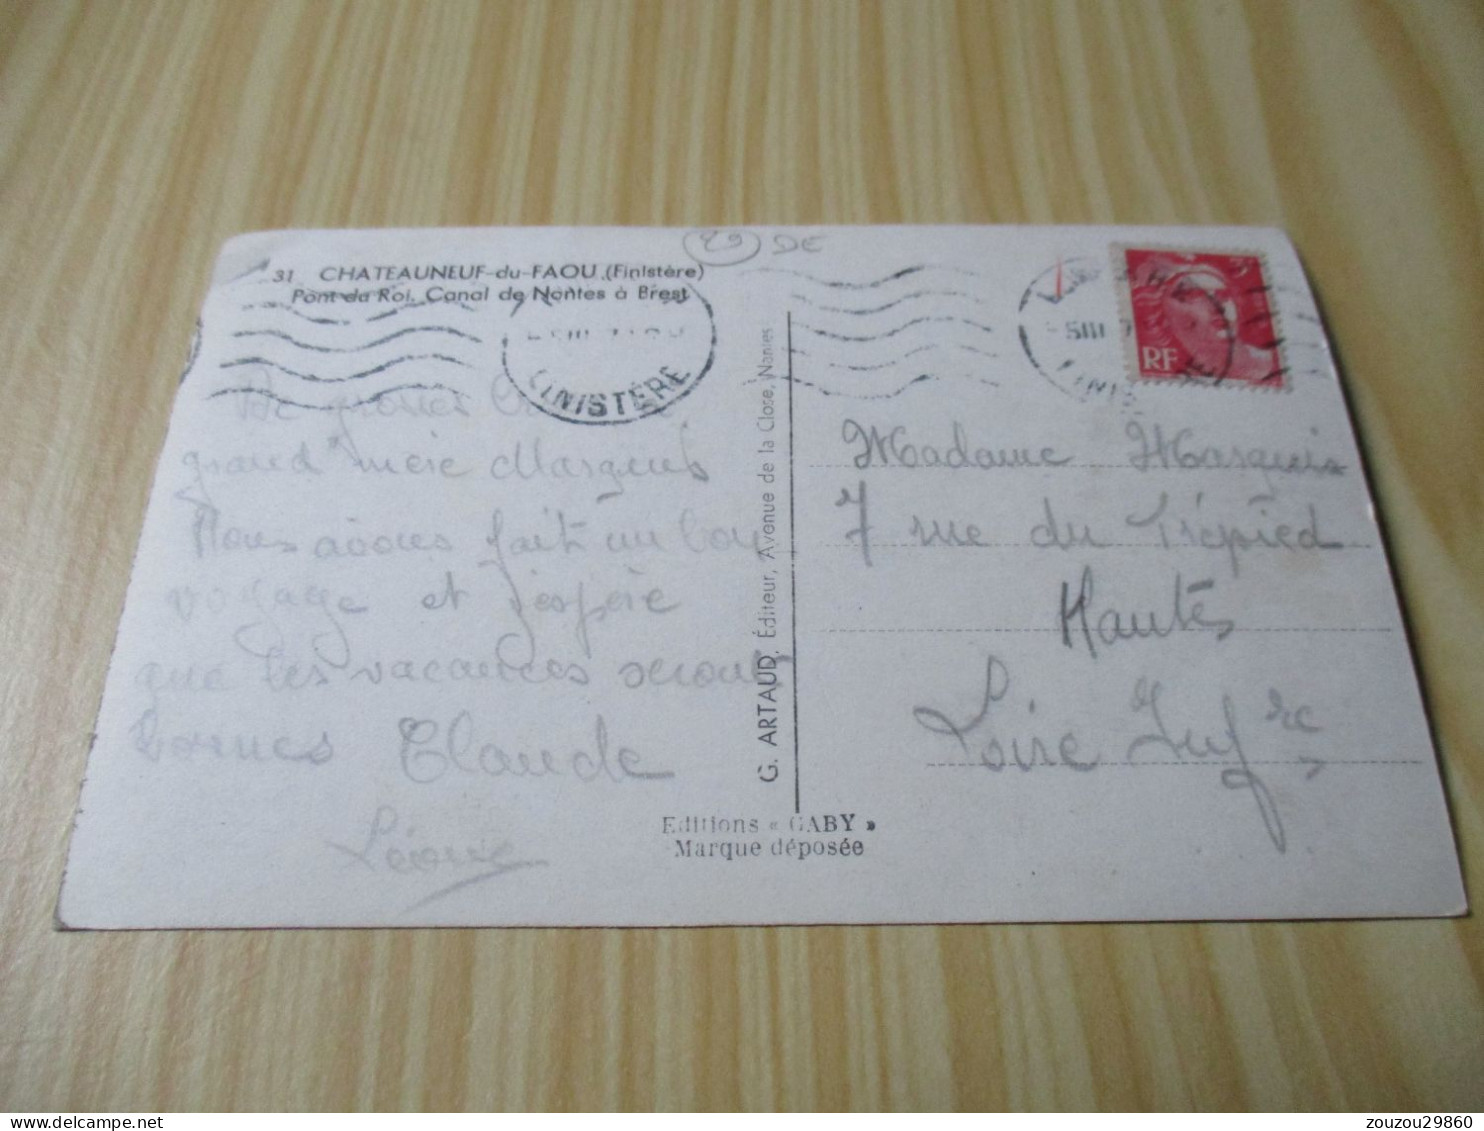 29 DE
31 CHATEAUNEUF-du-FAOU (Finistère)
Pont du Roi. Canal de Nantes à Brest
FINISTÈRE
De grosses
grand' mère Marquis
Nous avons fait un bon
voyage et j'espère
que les vacances seront
bonnes Claude
Léone
G. ARTAUD, Éditeur, Avenue de la Close, Nantes
Editions « GABY »
Marque déposée
RF
Madame Marquis
7 rue du Trépied
Nantes
Loire Inf re
zouzou29860